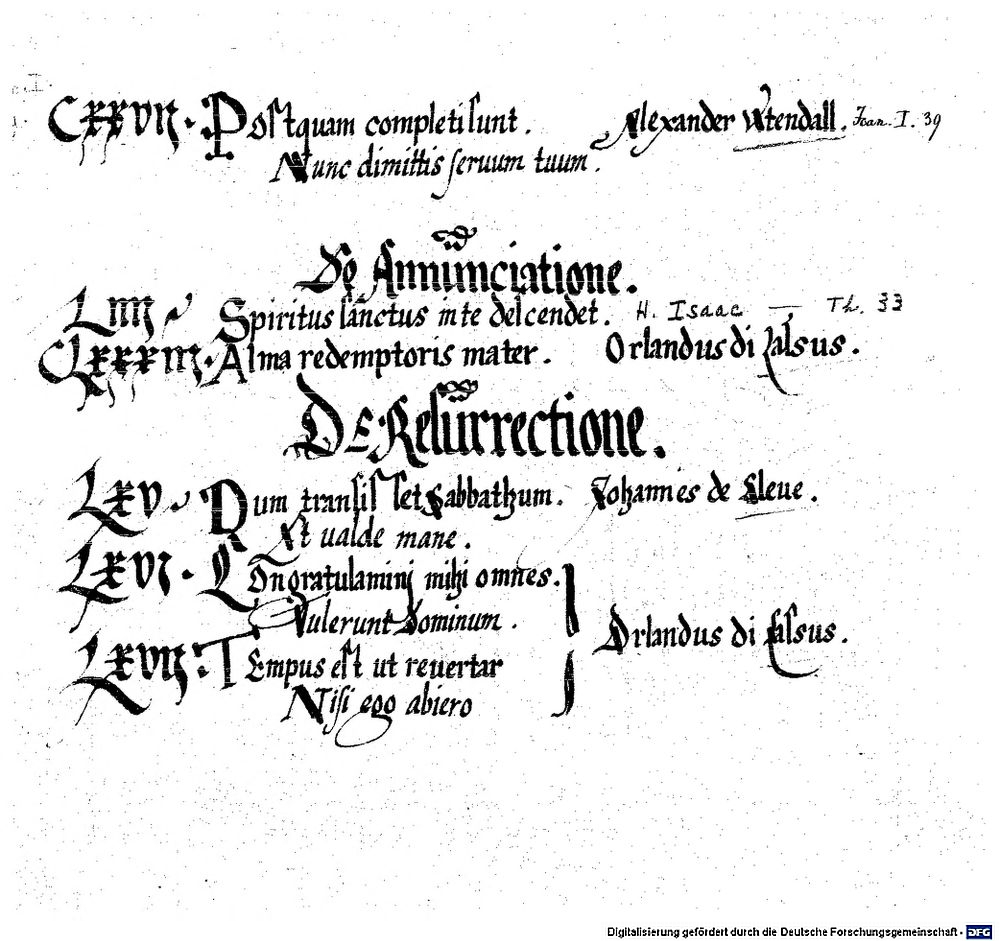 CXXVII. Postquam completi sunt. Alexander Vtendall. Joan. I. 39
Nunc dimittis seruum tuum.
De Annunciatione.
LIIII Spiritus sanctus in te descendet. H. Isaac — Th. 33
Alma redemptoris mater. Orlandus di Lassus.
DE Resurrectione.
LXV Dum transisset Sabbathum. Johannes de Cleue.
Et ualde mane.
LXVI. Congratulamini mihi omnes.
Tulerunt Dominum. Orlandus di Lassus.
LXVII. TEmpus est ut reuertar
Nisi ego abiero
Digitalisierung gefördert durch die Deutsche Forschungsgemeinschaft - DFG